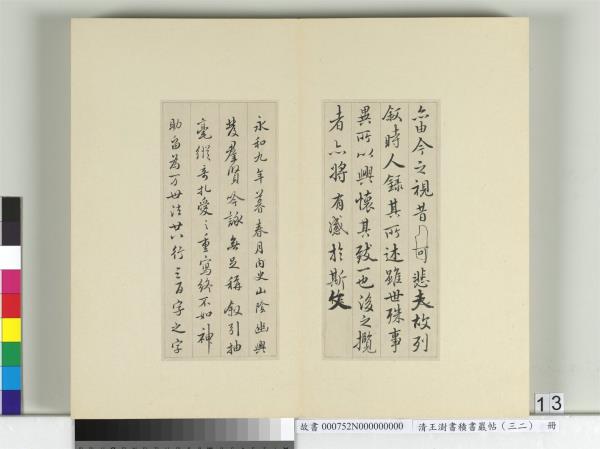 亦由今之視昔可悲夫故列
叙時人錄其所述雖世殊事
異所以興懷其致一也後之攬
者亦將有感於斯文
永和九年暮春月內史山陰幽興
發群賢吟詠無足稱叙引抽
毫縱奇札愛之重寫終不如神
助留為万世法廿八行三百字之字
13
故書 000752N000000000 清王澍書積書巖帖(三二) 冊